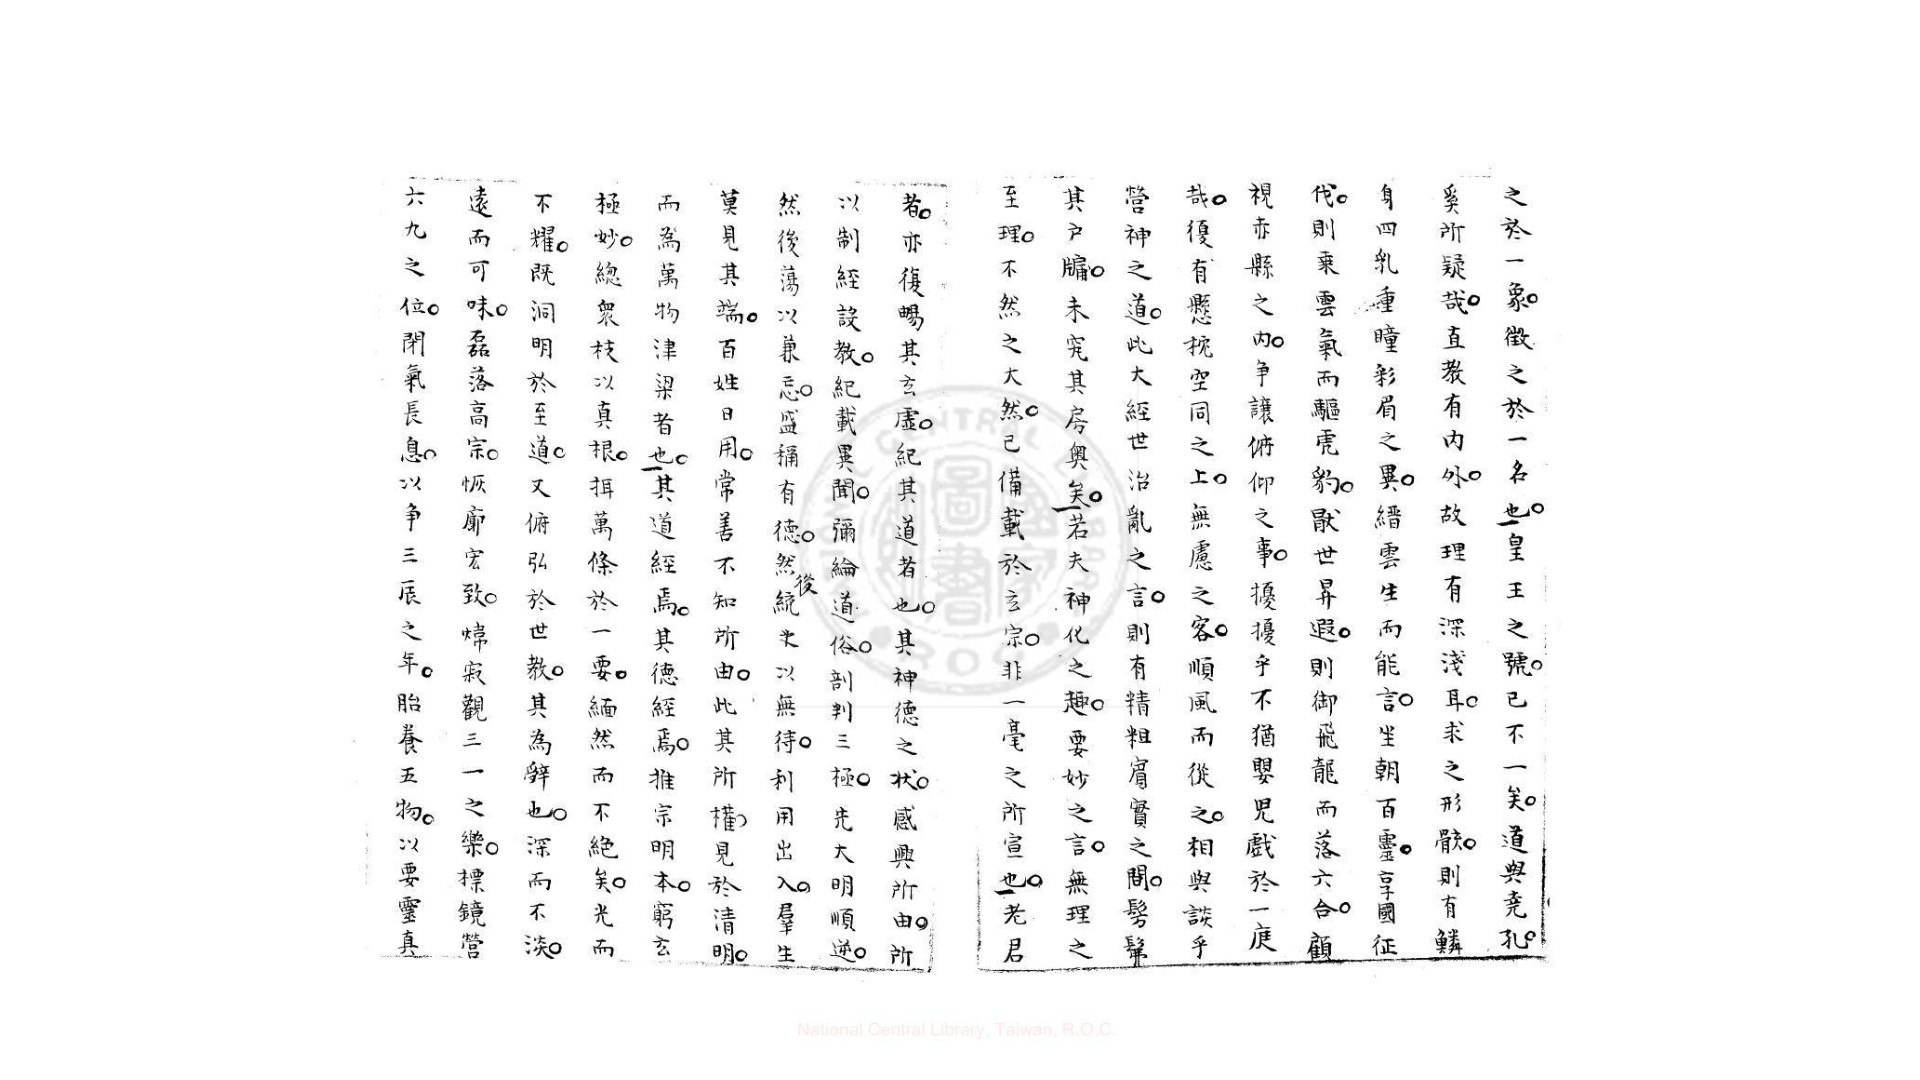 之於一象。徵之於一名也。皇王之號。已不一矣。道與堯孔。
奚所疑哉。直教有內外。故理有深淺耳。求之形骸。則有鱗
身四乳重瞳彩眉之異。縉雲生而能言。坐朝百靈。享國征
伐。則乘雲氣而驅虎豹。厭世昇遐。則御飛龍而落六合。顧
視赤縣之內。爭讓俯仰之事。擾擾乎不猶嬰児戲於一庭
哉。復有懸梡空同之上。無慮之客。順風而從之。相與談乎
營神之道。此大經世治亂之言。則有精粗賓實之間。髣髴
其戶牖。未究其房奧矣。若夫神化之趣。要妙之言。無理之
至理。不然之大然。已備載於玄宗。非一毫之所宣也。老君
者。亦復暢其玄虛。紀其道者也。其神德之狀。感興所由。所
以制經設教。紀載異聞。彌綸道俗。剖判三極。先大明順逆。
然後蕩以兼忘。盛稱有德。然後統之以無待。利用出入。羣生
莫見其端。百姓日用。常善不知所由。此其所權見於清明。
而為萬物津梁者也。其道經焉。其德經焉。推宗明本。窮玄
極妙。總衆枝以真根。揖萬條於一要。緬然而不絕矣。光而
不耀。既洞明於至道。又俯弘於世教。其為辭也。深而不淡。
遠而可味。磊落高宗。恢廓宏致。煒寂觀三一之樂。標鏡營
六九之位。閉氣長息。以爭三辰之年。胎養五物。以要靈真
National Central Library, Taiwan, R.O.C.